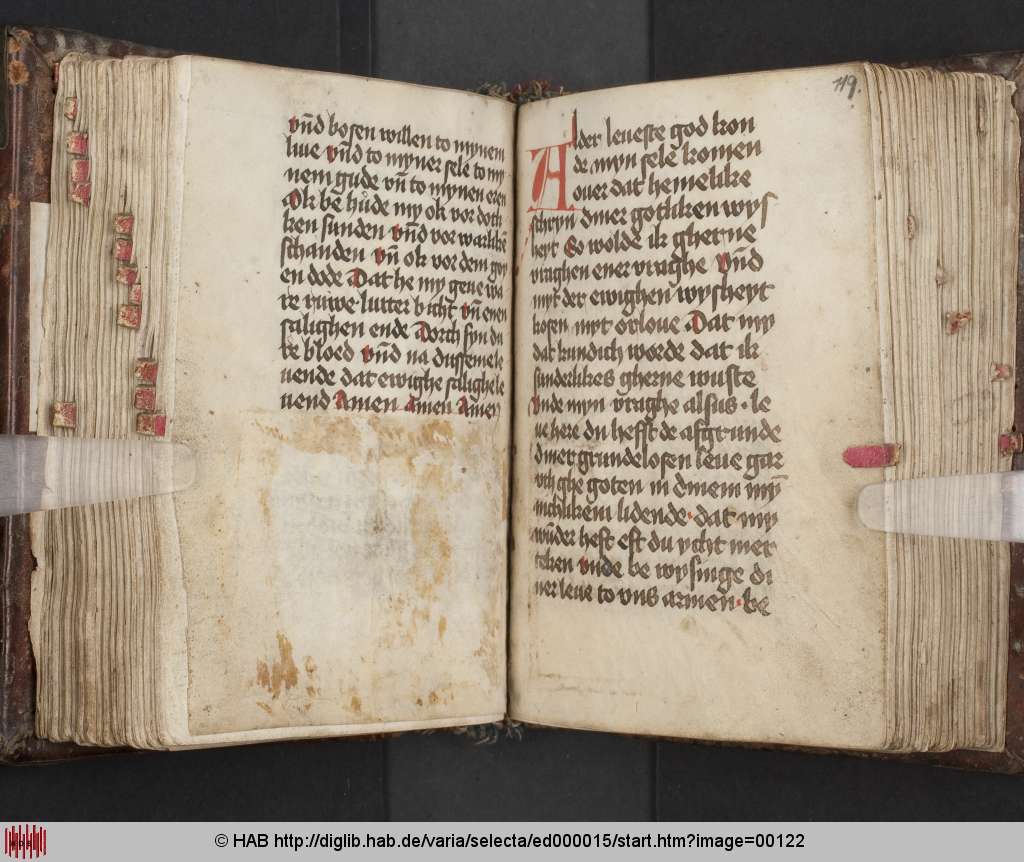 vn̄d bosen willen to mynem
liue vn̄d to myner sele to my
nem gude vn̄ to mynen eren
Ok bē hůde my ok vor dotli
ken sunden vn̄d vor warlikē
schanden vn̄ ok vor dem gay
en dode Dat he my geue wa
re ruwe lutter bicht vn̄ enen
salighen ende Dorch syn du
re bloed vn̄d na dussemele
uende dat ewighe salighele
uend Amen Amen Amen
119.
Alder leueste god kon
de myn sele komen
ouer dat hemelike
schryn diner gotliken wys
heyt So wolde ik gherne
vraghen ener vraghe vn̄d
myt der ewighen wysheyt
kosen myt orloue Dat my
dat kundich worde dat ik
sunderlikes gherne wuste
vnde myn vraghe alsus · le
ue here du hefst de afgrunde
diner grundelosen leue gar
vth ghe goten in dinem mȳ
nichlikem lidende · dat my
wūder heft eft du ycht mer
teken vnde be wysinge di
ner leue to vns armen · be
© HAB http://diglib.hab.de/varia/selecta/ed000015/start.htm?image=00122